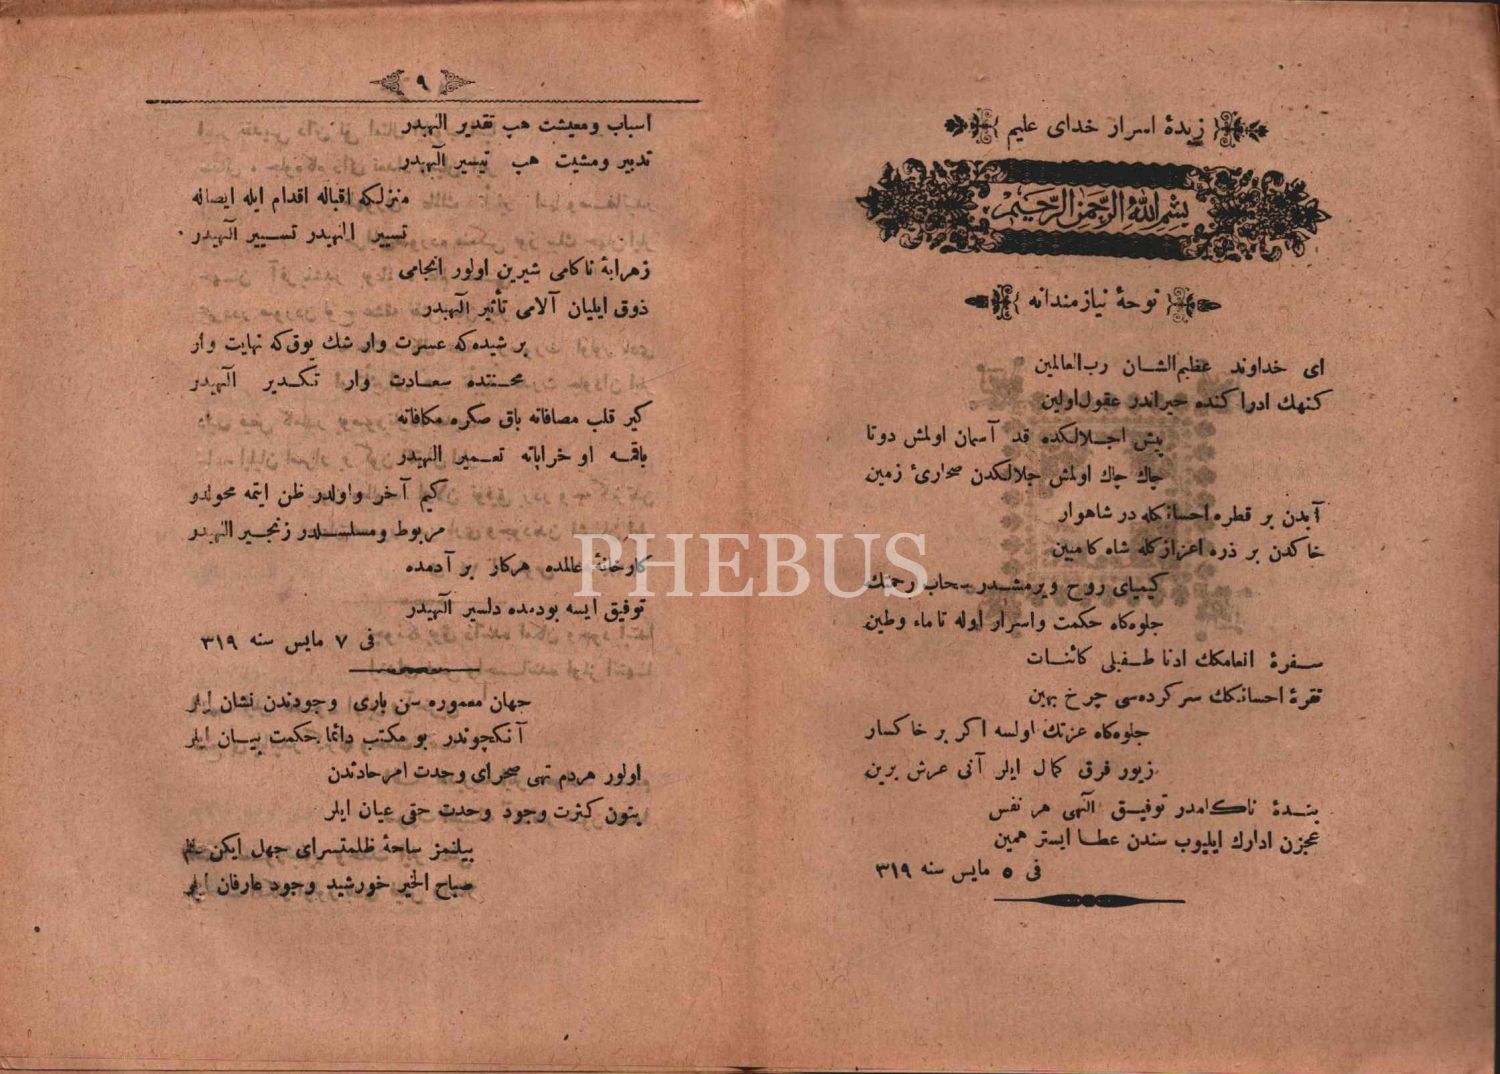 زبدهٔ اسرار خدای علیم
بسم الله الرحمن الرحیم
نوحهٔ نیازمندانه
ای خداوند عظیم‌الشان رب‌العالمین
کنهك ادرا کنده حیراندر عقول‌اولین
پیش اجلالکده قد آسمان اولمش دوتا
چاك چاك اولمش جلالکدن صحاریٔ زمین
آبدن بر قطره احسانکله در شاهوار
خاکدن بر ذره اعزازکله شاه کامبین
کیمیای روح ویرمشدر سحاب رحمتك
جلوه‌کاه حکمت واسرار اوله تا ماء وطین
سفرهٔ انعامکك ادنا طفیلی کائنات
نقرهٔ احسانکك سرکرده‌سی چرخ بهین
جلوه‌کاه عزتك اولسه اکر بر خاکسار
زیور فرق کمال ایلر آنی عرش برین
بندهٔ ناکامدر توفیق الهی هر نفس
عجزن ادارك ایلیوب سندن عطا ایستر همین
فی ٥ مایس سنه ٣١٩
٩
اسباب ومعیشت هپ تقدیر الهیدر
تدبیر ومشیت هپ تیسیر الهیدر
منزلکه اقباله اقدام ایله ایصاله
تسییر الهیدر تسییر الهیدر
زهرابهٔ ناکامی شیرین اولور انجامی
ذوق ایلیان آلامی تأثیر الهیدر
بر شیده‌که عسرت وار شك یوق‌که نهایت وار
محنتده سعادت وار تکدیر الهیدر
کیر قلب مصافاته باق صکره مکافاته
باقمه او خراباته تعمیر الهیدر
کیم آخر واولدر ظن ایتمه محولدو
مربوط ومسلسلدر زنجیر الهیدر
کارخانهٔ عالمده هرکار بر آدمده
توفیق ایسه بودمده دلسیر الهیدر
فی ٧ مایس سنه ٣١٩
جهان معموره سن باری وجودندن نشان ایلر
آنکچوندر بو مکتب دائما حکمت بیان ایلر
اولور هردم تهی صحرای وحدت امرحادثدن
بتون کثرت وجود وحدت حقی عیان ایلر
بیلنمز ساحهٔ ظلمتسرای جهل ایکن
صباح الخیر خورشید وجود عارفان ایلر
PHEBUS